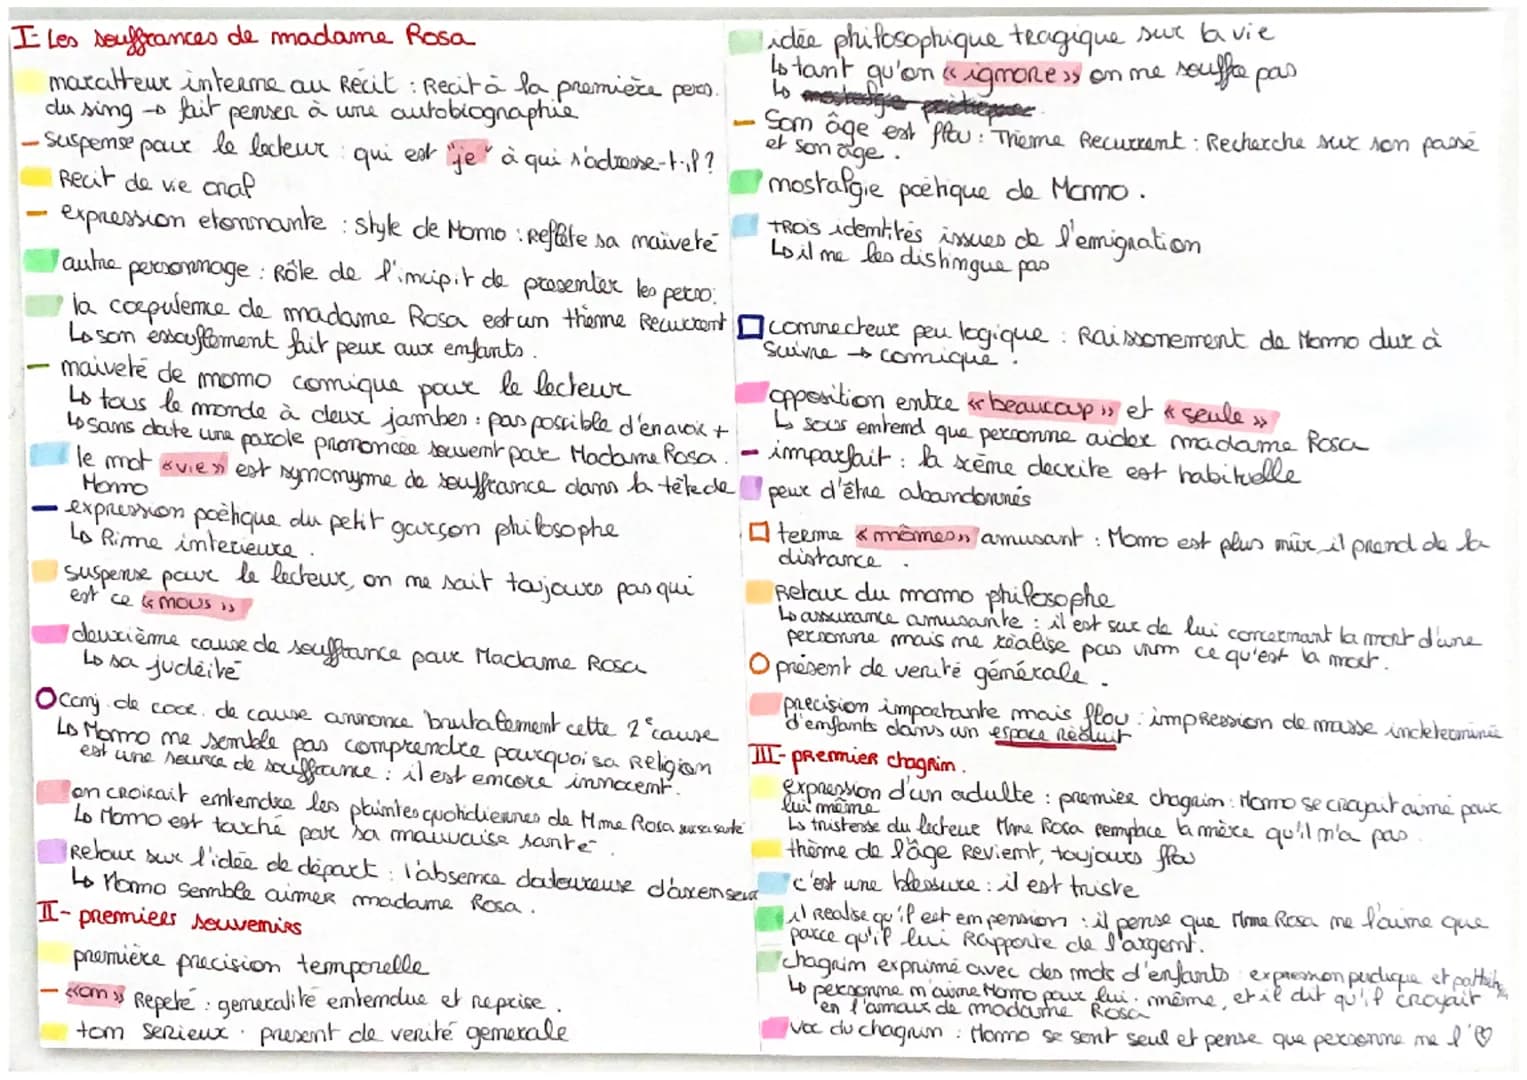 I- Les souffrances de madame Rosa
narratteur interne au Récit : Recit à la première pers.
du sing → fait penser à une autobiographie
- suspense pour le lecteur : qui est "je" à qui s'adresse-t-il ?
Recit de vie oral
- expression etonnante : style de Momo : Reflète sa naiveté
autre personnage : Rôle de l'incipit de presenter les perso.
la corpulence de madame Rosa est un thème Recurrent
↳ son essouflement fait peur aux enfants.
- naiveté de momo comique pour le lecteur
↳ tous le monde à deux jambes : pas possible d'en avoir +
↳ sans doute une parole prononcée souvent par Madame Rosa.
le mot « vie » est synonyme de souffrance dans la tête de
Momo
- expression poètique du petit garçon philosophe
↳ Rime interieure.
suspense pour le lecteur, on ne sait toujours pas qui
est ce « nous »
deuxième cause de souffrance pour Madame Rosa
↳ sa judéité
conj. de coor. de cause annonce brutalement cette 2e cause
↳ Momo ne semble pas comprendre pourquoi sa Religion
est une source de souffrance : il est encore innocent.
on croirait entendre les plaintes quotidiennes de Mme Rosa sur sa santé
↳ Momo est touché par sa mauvaise santé.
Retour sur l'idée de départ : l'absence douloureuse d'ascenseur
↳ Momo semble aimer madame Rosa.
II- premiers souvenirs
première precision temporelle
- «on» Repeté : generalité entendue et reprise.
tom serieux. present de verité generale
idée philosophique tragique sur la vie
↳ tant qu'on « ignore » on ne souffre pas
↳
- Son âge est flou : Theme Recurrent : Recherche sur son passé
et son âge.
nostalgie poètique de Momo.
TROis identités issues de l'emigration
↳ il ne les distingue pas
connecteur peu logique : Raissonement de Momo dur à
suivre → comique.
opposition entre « beaucoup » et « seule »
↳ sous entend que personne aider madame Rosa
- imparfait : la scène decrite est habituelle
peur d'être abandonnés
terme « mômes » amusant : Momo est plus mûr, il prend de la
distance.
Retour du momo philosophe
↳ assurance amusante : il est sur de lui concernant la mort d'une
personne mais ne réalise pas vrm ce qu'est la mort.
présent de verité générale.
precision importante mais flou : impression de masse indeterminée
d'enfants dans un espace Réduit
III- premier chagrin.
expression d'un adulte : premier chagrin : Momo se croyait aimé pour
lui même
↳ tristesse du lecteur Mme Rosa remplace la mère qu'il n'a pas.
thème de l'âge Revient, toujours flou
c'est une blessure : il est triste
il Realise qu'il est en pension : il pense que Mme Rosa ne l'aime que
parce qu'il lui Rapporte de l'argent.
chagrin exprimé avec des mots d'enfants : expression pudique et
↳ personne n'aime Momo pour lui même, et il dit qu'il croyait
en l'amour de madame Rosa
voc du chagrin : Momo se sent seul et pense que personne ne l'♡